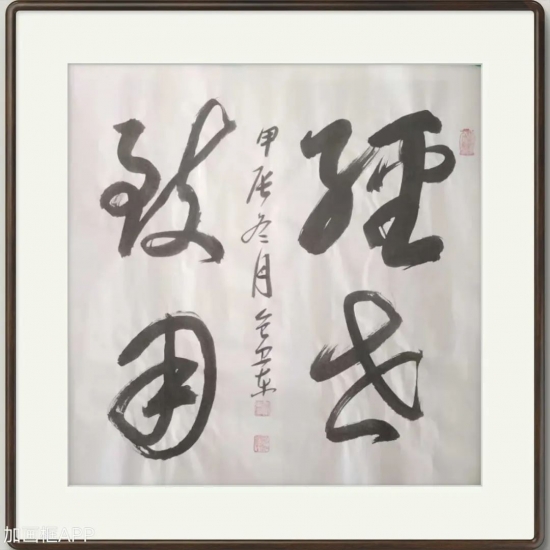 經世
致用
甲辰冬月卫东
加画框APP